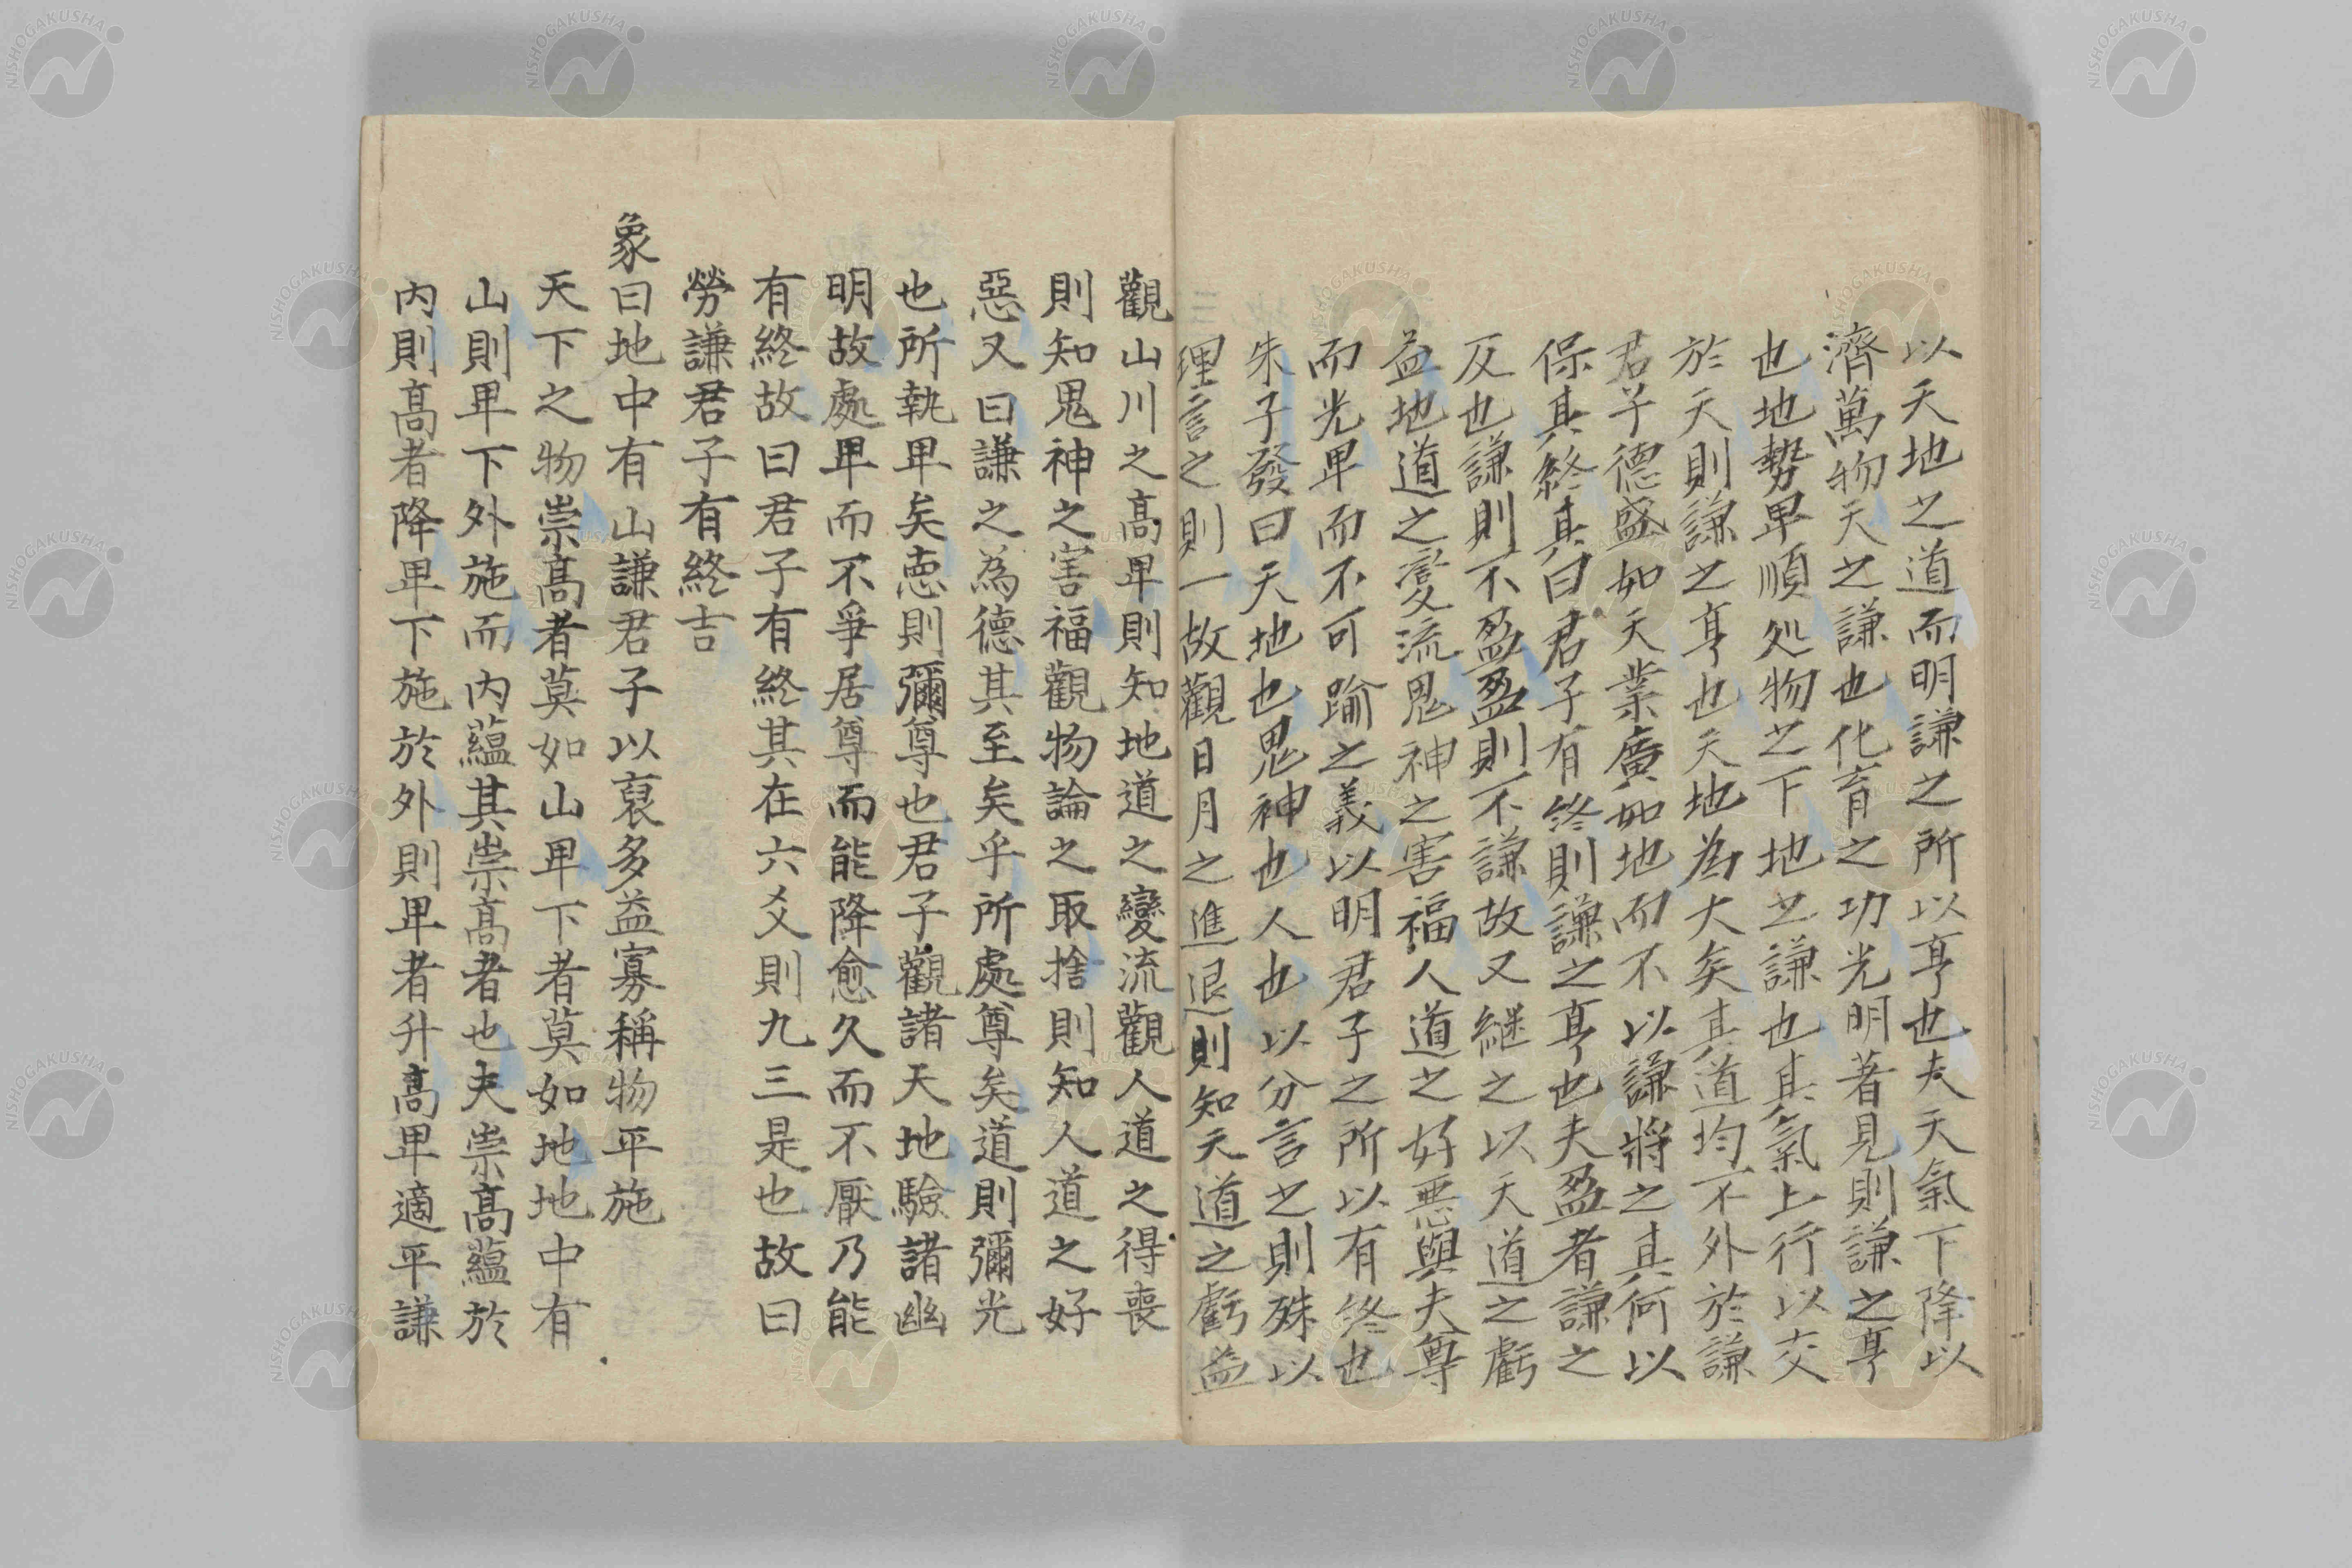 以天地之道而明謙之所以亨也夫天氣下降以
濟萬物天之謙也化育之功光明著見則謙之亨
也地勢卑順処物之下地之謙也其氣上行以交
於天則謙之亨也天地為大矣其道均不外於謙
君子德盛如天業廣如地而不以謙將之其何以
保其終其曰君子有終則謙之亨也夫盈者謙之
反也謙則不盈盈則不謙故又継之以天道之虧
益地道之変流鬼神之害福人道之好惡與夫尊
而光卑而不可踰之義以明君子之所以有終也
朱子發曰天地也鬼神也人也以分言之則殊以
理言之則一故觀日月之進退則知天道之虧益
觀山川之高卑則知地道之變流觀人道之得喪
則知鬼神之害福觀物論之取捨則知人道之好
惡又曰謙之為德其至矣乎所處尊矣道則彌光
也所執卑矣徳則彌尊也君子觀諸天地驗諸幽
明故處卑而不爭居尊而能降愈久而不厭乃能
有終故曰君子有終其在六爻則九三是也故曰
勞謙君子有終吉
象曰地中有山謙君子以裒多益寡稱物平施
天下之物崇高者莫如山卑下者莫如地地中有
山則卑下外施而内蘊其崇高者也夫崇高蘊於
内則高者降卑下施於外則卑者升高卑適平謙
NISHOGAKUSHA